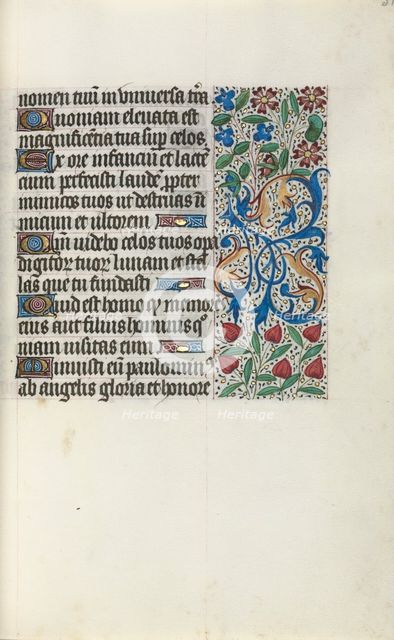 nomen tuũ in vniuersa tr̃a
Quoniam eleuata est
magnificentia tua sup̲ celos.
Ex ore infanciũ et lactẽ
cium perfecisti laudẽ p̲pter
inimicos tuos ut destruas ı̃
micum et ultorem
Qm̃ uidebo celos tuos opa
digitor̃ tuor̃ lunam et stel
las que tu fundasti
Quid est homo q̃ memores
eius aut filius hominis qͦ
niam uisitas eum
Minuisti eũ paulomin⁹
ab angelis gloria et honore
Heritage
Heritage
Heritage
Heritage